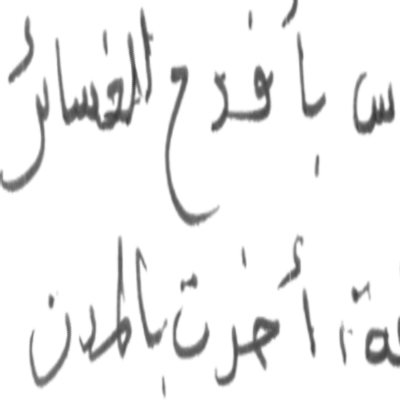 بأفدح الخسائر
أخذت بالمدن